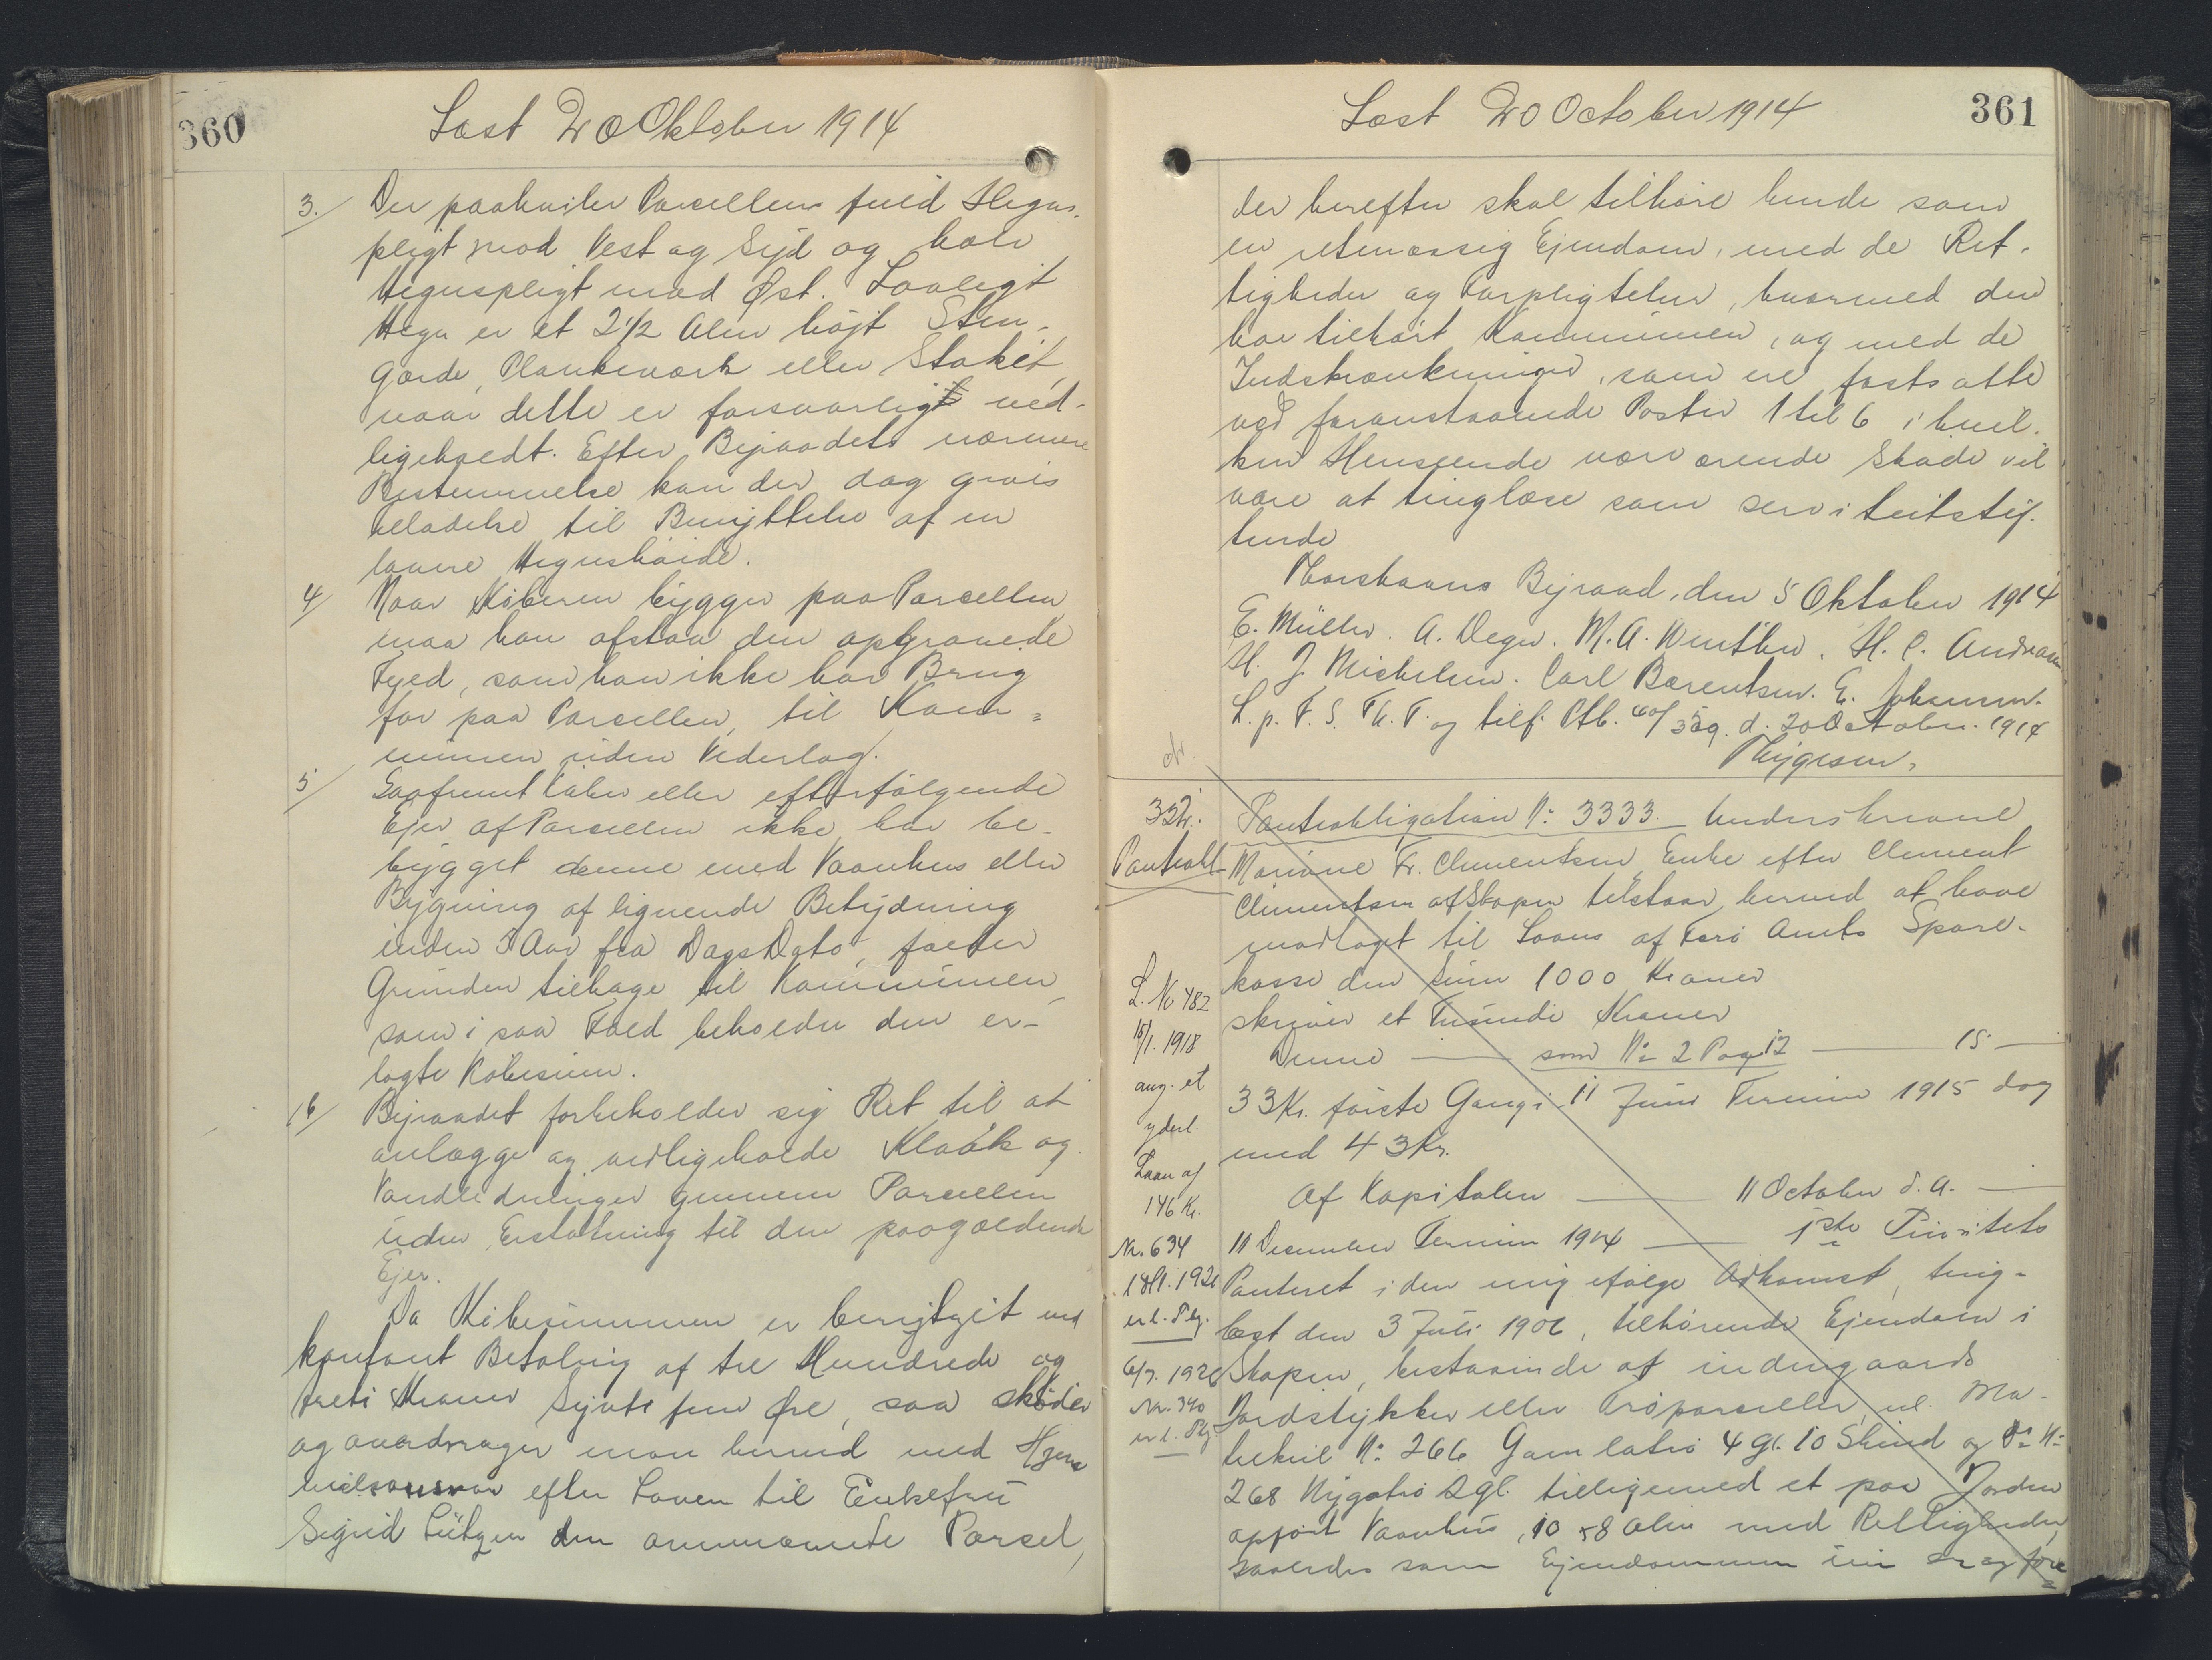 360
Læst 20 Oktober 1914
3./ Der paahviler Parcellen fuld Hegns-
pligt mod Vest og Syd og halv
Hegnspligt mod Øst. Lovligt
Hegn er et 2 1/2 Alen højt Sten-
gærde, Plankeværk eller Stakét,
naar dette er forsvarligt ved-
ligeholdt. Efter Byraadets nærmere
Bestemmelse kan der dog gives
Tilladelse til Benyttelse af en
lavere Hegnshøide.
4/ Naar Køberen bygger paa Parcellen
maa han afstaa den opgravede
Fyld, som han ikke har Brug
for paa Parcellen, til Kom=
munen uden Vederlag.
5/ Saafremt Køber eller efterfølgende
Ejer af Parcellen ikke har be-
bygget denne med Vaanhus eller
Bygning af lignende Betydning
inden 3 Aar fra Dags Dato, falder
Grunden tilbage til Kommunen,
som i saa Fald beholder den er-
lagte Købesum.
6/ Byraadet forbeholder sig Ret til at
anlægge og vedligeholde Kloak og
Vandledninger gennem Parcellen
uden Erstatning til den paagældende
Ejer.
Da Købesummen er berigtiget ved
kontant Betaling af tre Hundrede og
treti Kroner Syvti fem Øre, saa skøder
og overdrager man herved med Hjem
melsansvar efter Loven til Enkefru
Sigrid Lützen den ommeldte Parsel,
361
Læst 20 October 1914
der herefter skal tilhøre hende som
en retmæssig Ejendom, med de Ret-
tigheder og Forpligtelser, hvormed den
har tilhørt Kommunen, og med de
Indskrænkninger, som ere fastsatte
ved foranstaaende Poster 1 til 6 i hvil-
ken Henseende nærværende Skøde vil
være at tinglæse som servitutstif-
tende
Thorshavns Byraad, den 5 Oktober 1914
E. Müller. A. Degn. M. A. Winther. H. C. Andreasen
H. J. Michelsen. Carl Bærentsen. E. Johannesen.
L. p. F. S. Th. T. og tilf. Ptb. d. 20 October 1914
Thygesen.
352. Panteobligation No 3333. Underskrevne
Panteobl Mariane Fr. Clementsen, Enke efter Clement
Clementsen af Skopen tilstaar herved at have
modtaget til Laans af Færø Amts Spare-
kasse den Sum 1000 Kroner
skriver et Tusinde Kroner
Denne — som No 2 Pag 12 — 15 —
33 Kr. første Gang i 11 Juni Termin 1915 dog
med 43 Kr.
Af Kapitalen — 11 October d. A. —
11 December Termin 1914 — 1ste Prioritets
Panteret i den mig ifølge Adkomst, ting-
læst den 3 Juli 1906, tilhørende Ejendom i
Skopen, bestaaende af indengaards
Jordstykker eller Trøparceller, nl. Ma-
trikul No 266 Gamlatrø 4 Gl. 10 Skind og Do No
268 Nygatrø 2 gl. tilligemed et paa Jorden
opført Vaanhus, 10 x 8 Alen med Rettigheder,
saaledes som Ejendommen nu er og føre
L. No 482
15/1. 1918
ang. et
yderl.
Laan af
146 Kr.
Nr. 634
er l. Ptg.
6/7. 1926
Nr. 340
er l. Ptg.